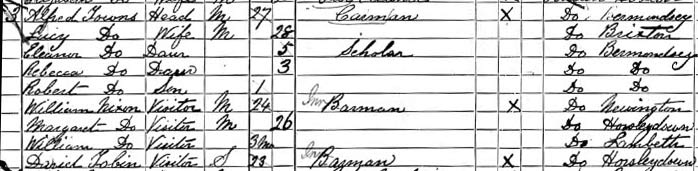 3 Alfred Towns Head M 27 Carman X Do Bermondsey
Lucy Do Wife M 28 Do Brixton
Eleanor Do Daur 5 Scholar Do Bermondsey
Rebecca Do Daur 3 Do Do
Robert Do Son 1 Do Do
William Nixon Visitor M 24 Barman X Do Newington
Margaret Do Visitor M 26 Do Horsleydown
William Do Visitor 3 Mo Do Lambeth
David Tobin Visitor S 23 Barman X Do Horsleydown